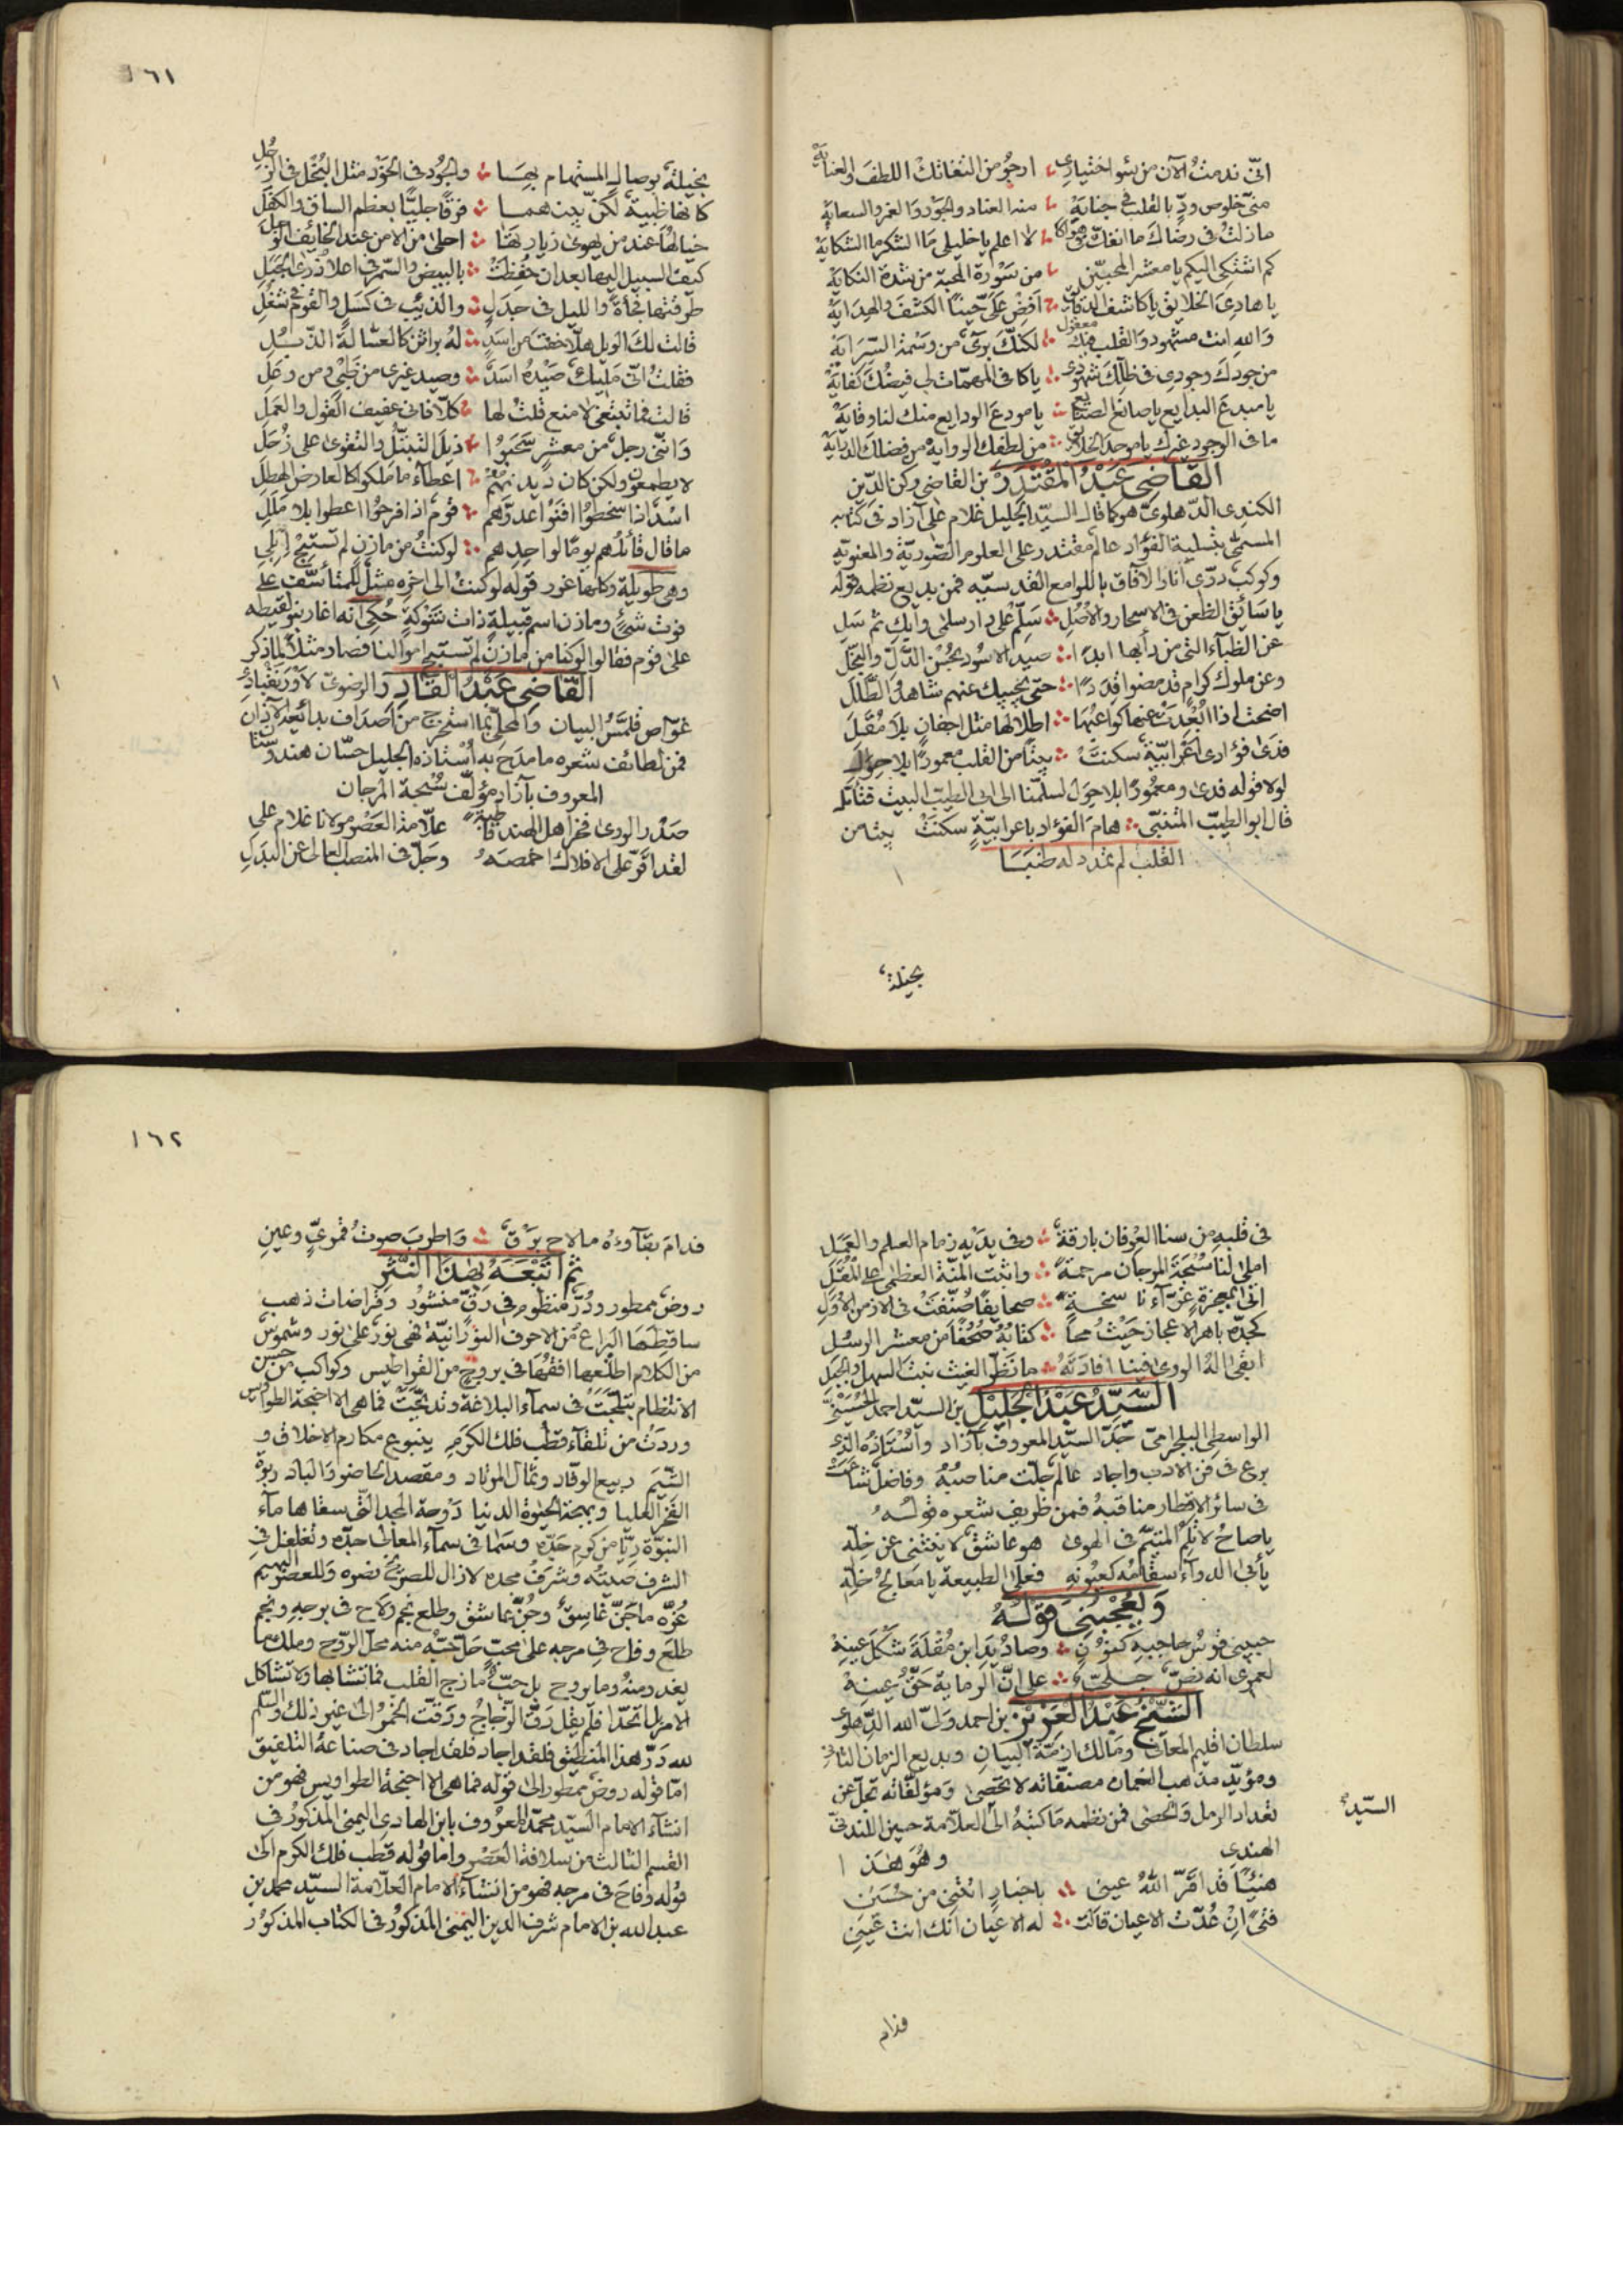 انّى ندمتُ الآن من سُو اختيارى ارجُو من التفاتك اللطف والعنايَهْ
منّى خلوص ودٍّ بالقلب فى جنابِهْ منه العناد والجَوْر والغمز والسعايَهْ
مازلتُ فى رضاك ما انفكّ فى هواكا لا اعلم يا خليلى مَا الشكر ما الشكايَهْ
كم اشتكى اليكم يا معشر المحبيّن من سَوْرة المحبة من شدة النكايَهْ
يا هادىَ الخلايق يا كاشف الدقايق اَفِضْ عَلَىَّ حِينًا الكشفَ والهِدَايَهْ
وَاللهِ انت مشهود وَالقلب فيك معقول لكنّك برىٌ من وَسْمة السِّرَايَهْ
من جودك وجودى فى ظلّك شهودى يا كافى المهمّات لى فيضُك كفايَهْ
يا مبدعَ البدايع يا صانع الصنايع يا مودعَ الودايع منك لنا وقايَهْ
ما فى الوجود غيرك يا موجد الخلايق من لطفك الروايه من فضلك الدرايَهْ
القَاضِى عَبْدُ المُقْتَدِرْ بن القاضى ركن الدّين
الكندى الدّهلوىّ هو كما قال السيّد الجليل غلام على آزاد فى كتابه
المسمّى بتسلية الفؤاد عالم مقتدر على العلوم الصّوريّة والمعنويّه
وكوكب درّى أنار الآفاق باللوامع القدسيّه فمن بديع نظمه قوله
يا سَائِق الظعن فى الاسحار والاُصُلِ سَلِّمْ على دار سلمى وابكِ ثم سَلِ
عن الظباء التى من دأبها ابدًا صيد الاسُود بحُسْن الدَّلّ والنجَلِ
وعن ملوك كرام قد مضوا قِدَدًا حتى يجيبك عنهم شاهدُ الطَّلَلِ
اضحت اذا ابْعُدَتْ عنها كواعبُهَا اطلالها مثل اجفانٍ بلا مُقَلِ
فدىً فؤادى اَعْرابيّةٌ سكنتْ بيتًا من القلب معمورًا بلا حِوَلِ
لولا قوله فدى ومعمُورًا بلا حِوَل لسلّمنا الى ابى الطيب البيت فتأمّله
قال ابو الطيبّ المتنبّى هامَ الفؤاد باعرابيّةٍ سكنتْ بيتًا من
القلب لم تمدد له طنبَا
بخيلةٌ
١٦١
بخيلةٌ بوصال المستهام بهَا والجُود فى الخَوْد مثل البُخل فى الرّجُلِ
كانها ظبيةٌ لكنّ بينهما فرقًا جليًّا بعظم الساق والكفَلِ
خيالُهَا عند من يهوى زيارتَهَا احلى من الامن عند الخائف الوَجِلِ
كيف السبيل اليها بعد ان حُفِظَتْ بالبيض والسّمر فى اعلا ذرى الجَبَلِ
طرقتها فجأةً والليل فى جدَلٍ والذيب فى كسَلٍ والقوم فى شُغُلِ
قالت لكَ الويل هلّا خفت من اسَدٍ لهُ براثن كالعسّالة الذّبُلِ
فقلتُ انّى مَليكٌ صَيْدُهُ اسَدٌ وصيد غيرى من ظبىٍ ومن وعَلِ
قالت فما تبتغى لا منع قلتُ لها كلّا فانى عفيف القول والعَمَلِ
وَانّنى رجلٌ من معشرٍ سَحَبُوا ذيلَ التبتّل والتقوى على زُحَلِ
لا يطمعون ولكن كان ديدنَهُمْ اعطآء ما ملكوا كالعارض الهطِلِ
اسْدٌ اذا سخطوا افنَوْا عدوَّهم قومٌ اذا فرحُوا اعطوا بلا مَلَلِ
ما قال قائلُهم يومًا لواحدِهم لو كنتُ من مازنٍ لم تستبِحْ اِبِلِى
وهى طويلة وكلها غرر قوله لو كنت الى اخره مثلٌ لمن تأسّف على
فوت شئٍ ومازن اسم قبيلةٍ ذات شَوْكةٍ حُكِى انه اغار بنو لقيطه
على قوم فقالوا لو كنا من مازنٍ لم تستبح اموالنا فصار مثلًا لما ذكر
القَاضِى عَبْدُ القَادِر الرضوىّ الاورنقبادى
غوّاص قلمَّسُ البيان والمحلِّى بما استخرج من أصداف بدائعه الآذان
فمن لطائف شعره ما مدَح به اُسْتاذه الجليل حسّان هندوستان
المعروف بآزاد مؤلّف سُبْحة المرجان
صَدْر الورى فخر اهل الهند قاطبةً علّامة العَصْر مولانا غلام على
لقد اقرّ على الافلاك اخمصَهُ وجلّ فى المنصب العالى عن البدَلِ
فى قلبه من سنا العِرْفان بارقةٌ وفى يدَيْه زمام العلم والعَمَلِ
املى لنا سُبْحَةَ المرجان مرحمةً واثبت المنّة العظمى على المُقَلِ
اتى بمعجزةٍ غرّآءَ ناسخةٍ صحايفًا صُنّفتْ فى الازمن الاُوَلِ
كجدّه باهر الاعجاز حَيْثُ محا كتابُهُ صُحُفًا من معشر الرسُلِ
ابقى الهُ الورى فينا افادتَهُ ما نَضَّر الغيث نبت السهل والجبَلِ
السَّيِّدُ عَبْدُ الجَلِيْل بن السيّد احمد الحُسَيْنىّ
الواسطى البلجرامىّ جَدّ السيّد المعروف بآزاد وَاُسْتاذُه الذى
برع فى فن الادب واجاد عالم جلّت مناصبُهُ وفاضل شاعَتْ
فى سائر الاقطار مناقبهُ فمن ظريف شعره قولُهُ
يا صاحُ لا تلُمْ المتيّم فى الهوى هو عاشق لا ينثنى عن خِلّه
يأبى الدوآء سقامُه كعيُونه فعلى الطبيعة يا مَعَالجُ خلّه
وَيُعْجِبُنِى قَوْلُهُ
حبيبى قوسُ حاجبه كنُوْنٍ وصادُ يَدِ ابن مُقْلَةَ شَكْل عينِهْ
لعمرى انه نصٌّ جلىٌّ على انّ الرماية حَقُّ عينهْ
الشَّيْخُ عَبْدُ العَزِيْز بن احمد ولىّ الله الدّهلوى
سلطان اقليم المعانى ومالك ازمّة البيان وبديع الزمان الثانى
ومؤيّد مذهب النعمان مصنفاته لا تحصى وَمؤلّفاته تجلّ عن
تعداد الرمل وَالحصى فمن نظمه مَا كتبهُ الى العلامة حسين اللندنى
الهندى وهُوَ هٰذا
هنئًا قد اقَرّ اللهُ عينى باخبارٍ اتتنى من حُسَيْن
فتىً اِنْ عُدّت الاعيان قالت له الاعيان انّك انت عَيْنِى
السيّدُ
فدام
١٦٢
فدامَ بقآوءُه ما لاح برْقٌ وَاطربَ صوتُ قمرىٍّ وعينِ
ثم اَتْبَعَهُ بِهٰذَا النَّثْرِ
روضٌ ممطور ودُرٌّ منظوم فى رَقٍّ منشُور وقراضات ذهب
ساقطَهَا اليراع من الاحرف النورانيّة فهى نورٌ على نور وشموسٌ
من الكلام اطلعها افقهَا فى بروجٍ من القراطيس وكواكب من حسن
الانتظام تبلّجَتْ فى سمآء البلاغة وتدبّجَتْ فما هى الا اجنحة الطواويس
وردَتْ من تلقآء قطب فلك الكرَمِ ينبوع مكارم الاخلاق و
الشّيَم ربيع الوفّاد وثمال المرتاد ومقصد الحاضر وَالباد ربوة
الفخر العليا وبهجة الحيٰوة الدنيا دَوْحة المجد التى سقاها مآء
النبوّة رِيًّا من كوم جَدّه وسَما فى سمآء المعالى جدّه وتغلغل فى
الشرف صيتُه وشرَفُ مجده لازال للمصرخ نصره وَللعصر البهيم
غُرّه ماجَنّ غاسِقٌ وحُنّ عاشق وطلع نجم ولاح فى برجه ونجم
طلعَ وفاح فى مرجه على محبٍّ حلّ حبُّه منه محلّ الرّوح وملكٍ بها
يغدو منهُ وما يروح بل حبٌّ مازج القلب فما تشابها ولا تشاكل
الامر بل اتحدا فلم يقل رَقّ الزّجاجُ ورَقّت الخمرُ الى غير ذلك والسّلم
لله دَرّ هذا المنطيق فلقد اجاد فلقد اجاد فى صناعة التلفيق
امّا قوله روضٌ ممطور الى قوله فما هى الا اجنحة الطواويس فهو من
انشآء الامام السيّد محمّد المعرُوف بابن الهادى اليمنى المذكورُ فى
القسم الثالث من سلافة العَصْر واما قوْله قطب فلك الكرم الى
قوله وفاحَ فى مرجه فهو من انشآء الامام العلّامة السيّد محمد بن
عبد الله بن الامام شرف الدين اليَمنى المذكورُ فى الكتاب المذكوْر